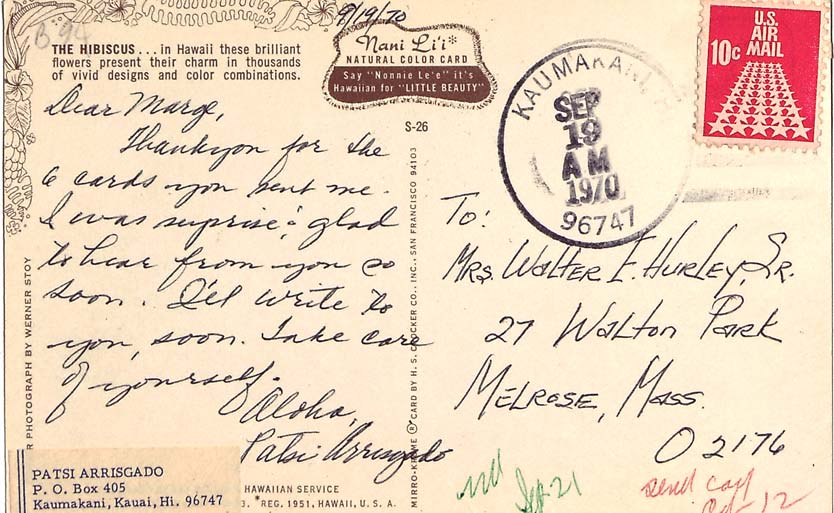 B-94
9/19/70
THE HIBISCUS . . . in Hawaii these brilliant
flowers present their charm in thousands
of vivid designs and color combinations.
Nani Li'i*
NATURAL COLOR CARD
Say "Nonnie Le'e" it's
Hawaiian for "LITTLE BEAUTY"
S-26
Dear Marge,
Thankyou for the
6 cards you sent me.
I was suprise & glad
to hear from you so
soon. I'll write to
you, soon. Take care
of yourself.
Aloha,
Patsi Arrisgado
PATSI ARRISGADO
P. O. Box 405
Kaumakani, Kauai, Hi. 96747
HAWAIIAN SERVICE
*REG. 1951, HAWAII, U. S. A.
R PHOTOGRAPH BY WERNER STOY
MIRRO-KROME ® CARD BY H. S. CROCKER CO., INC., SAN FRANCISCO 94103
KAUMAKANI
SEP
19
AM
1970
96747
U.S.
AIR
MAIL
10c
To:
Mrs. Walter E. Hurley, Sr.
27 Walton Park
Melrose, Mass.
02176
Sep. 21
send card
Oct 12